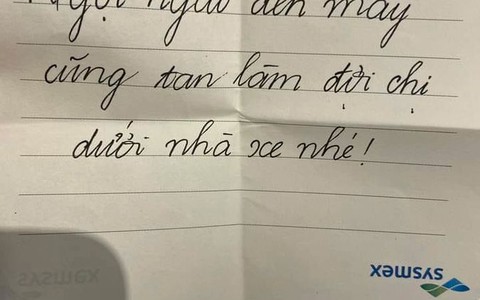 Ngọt ngào đến mấy
cũng tan lãm đợi chị
dưới nhà xe nhé!
sysmex
sysmex